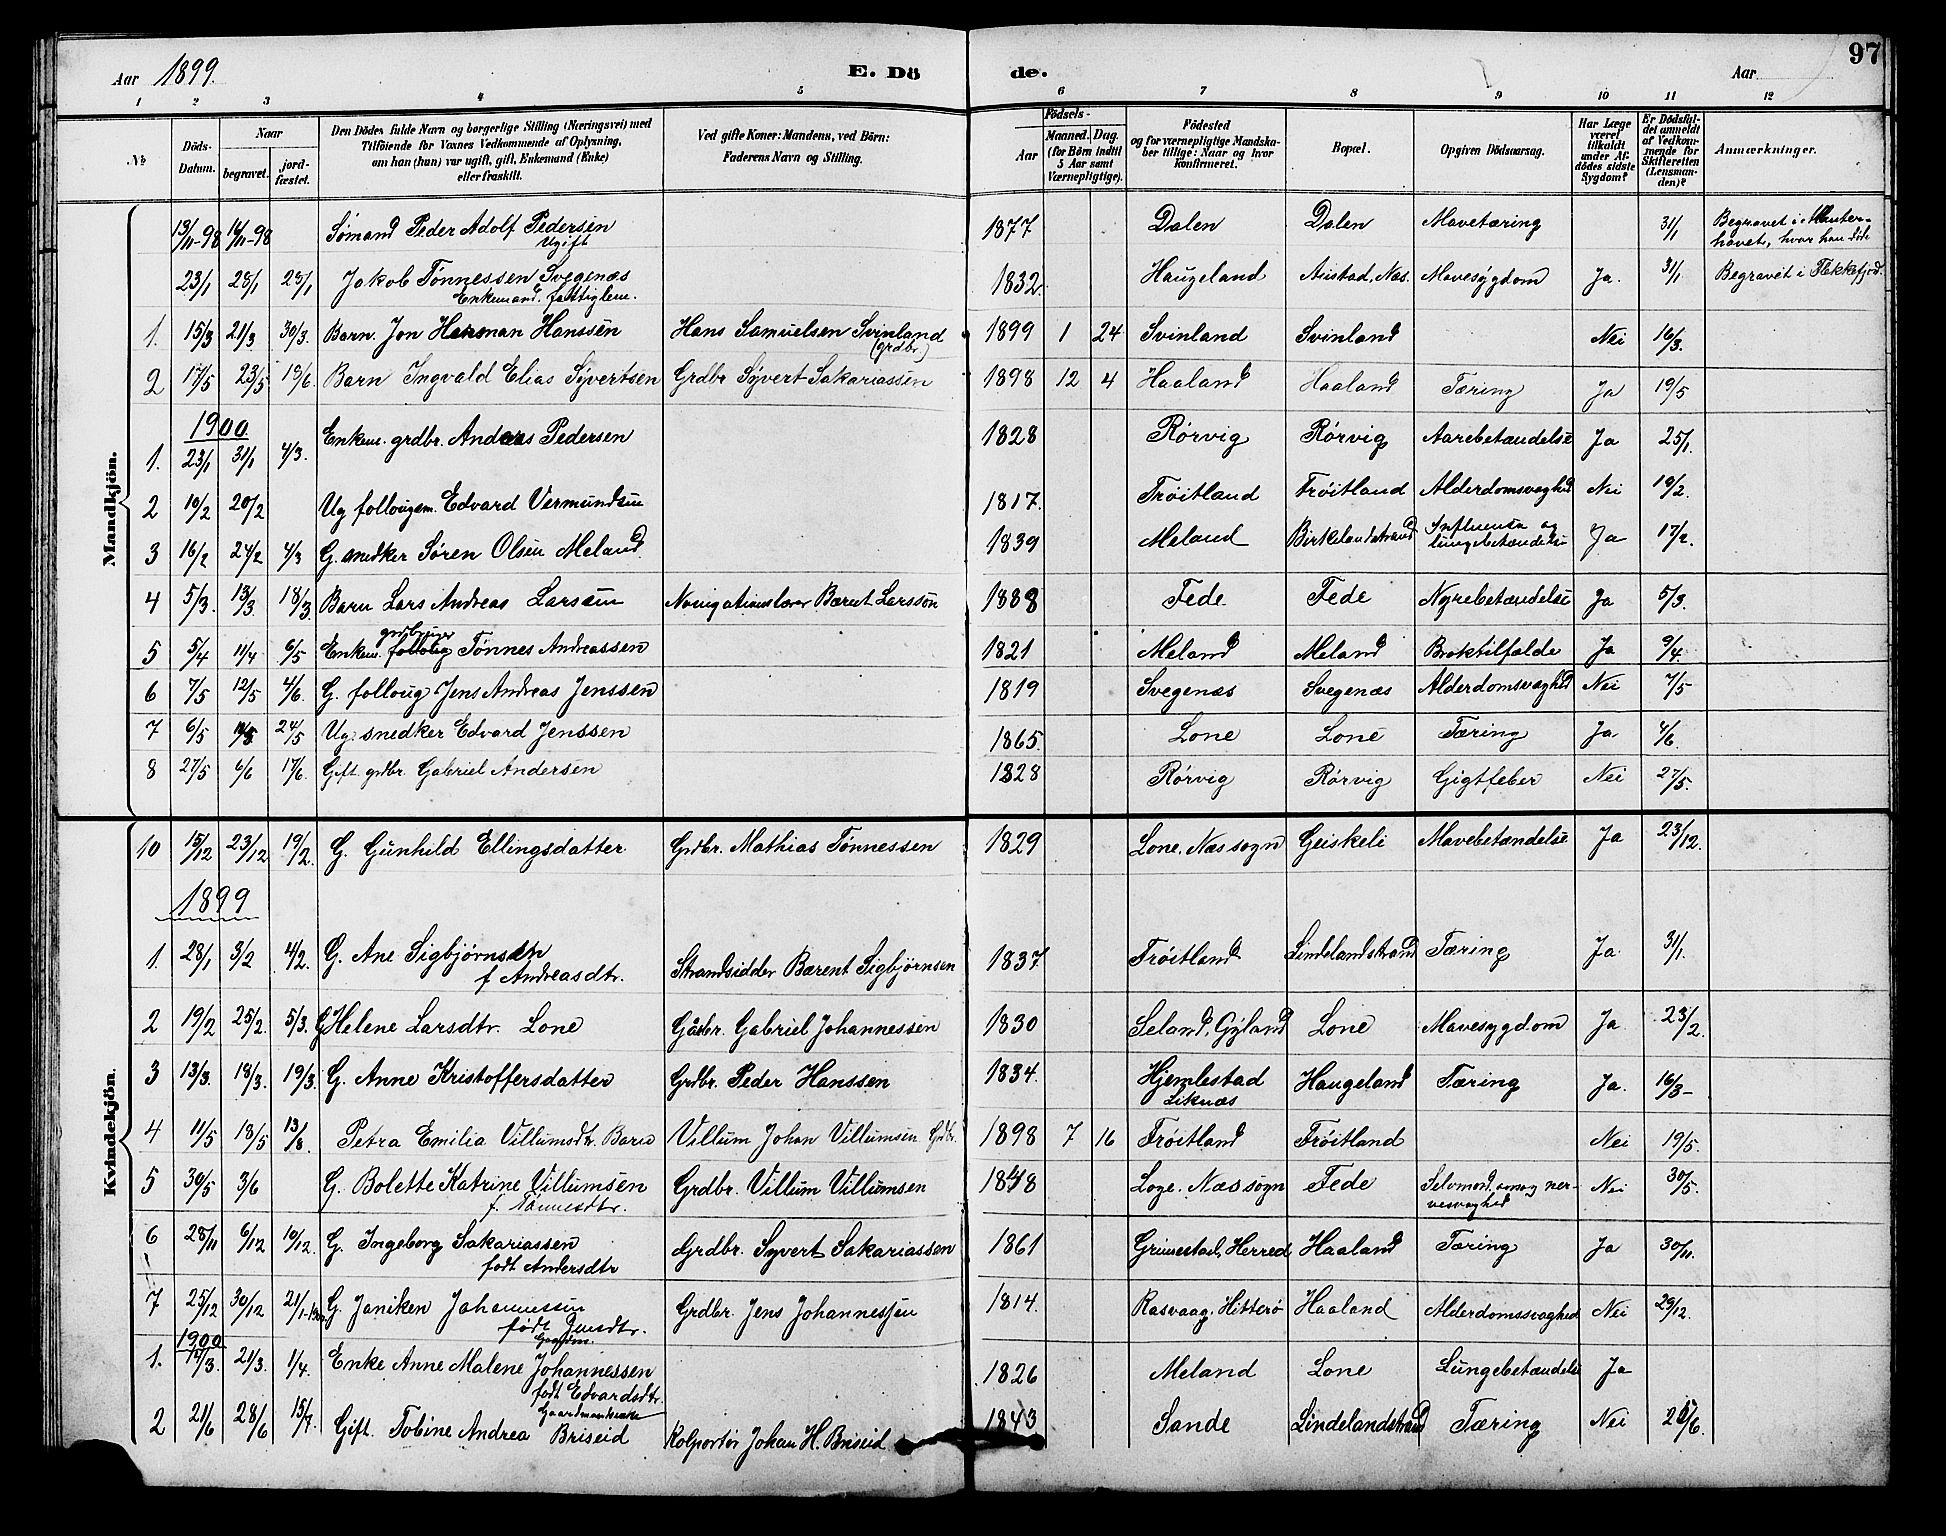 Aar 1899. E. Dö de. Aar 97
1 2 3 4 5 6 7 8 9 10 11 12
No Döds-Datum. Naar begravet. jordfæstet. Den Dödes fulde Navn og borgerlige Stilling (Næringsvei) med Tilföiende for Voxnes Vedkommende af Oplysning, om han (hun) var ugift, gift, Enkemand (Enke) eller fraskilt. Ved gifte Koner: Mandens, ved Börn: Faderens Navn og Stilling. Födsels- Aar Maaned. Dag. (for Börn indtil 5 Aar samt Værnepligtige). Födested og for værnepligtige Mandskaber tillige: Naar og hvor konfirmeret. Bopæl. Opgiven Dödsaarsag. Har Læge været tilkaldt under Afdödes sidste Sygdom? Er Dödsfaldet anmeldt af Vedkommende for Skifteretten (Lensmanden)? Anmærkninger.
Mandkjön.
13/11-98 14/11-98 Sømand Peder Adolf Pedersen 1877 Dalen Dalen Mavetæring 31/1 Begravet i
Ugift havet, hvor han døde
23/1 28/1 29/1 Jakob Tønnessen Svegenæs 1832. Haugeland Austad, Næs. Mavesygdom Ja. 31/1 Begravet i Flekkefjord.
Enkemand. fattiglem.
1. 15/3 21/3 30/3. Barn. Jon Herman Hanssen Hans Samuelsen Svinland 1899 1 24 Svinland Svinland Nei 16/3.
(grdbr.)
2 17/5 23/5 19/6. Barn Ingvald Elias Syvertsen Grdbr Syvert Sakariassen 1898 12 4 Haaland Haaland Tæring Ja 19/5
1900
1. 23/1 31/1 4/3. Enkem. grdbr. Anders Pedersen 1828 Rørvig Rørvig Aarebetændelse Ja 25/1.
2 10/2 20/2 Ug follougsm. Edvard Vermundsen 1817. Trøitland Frøitland Alderdomsvaghed Nei 19/2.
3 16/2 24/2 4/3 G. snedker Søren Olsen Meland. 1839 Meland Birkelandstrand Influensa og lungebetændelse Ja 17/2.
4 5/3. 13/3 18/3. Barn Lars Andreas Larsen Navigationslærer Bærnt Larsson 1888 Fede Fede Nyrebetændelse Ja 5/3.
gårdbruger
5 5/4 11/4 6/5 Enkem. folloug Tønnes Andreassen 1821 Meland Meland Broktilfælde Ja 9/4.
6 7/5 12/5 4/6. G. folloug Jens Andreas Jenssen 1819 Svegenæs Svegenæs Alderdomsvaghed Nei 7/5
7 6/5 24/5 Ug. snedker Edvard Jenssen 1865. Lone Lone Tæring Ja 4/6.
8 27/5 6/6 17/6. Gift grdbr. Gabriel Andersen 1828 Rørvig Rørvig Gigtfeber Nei 27/5.
Kvindekjön.
10 15/12 23/12 19/2. G. Gunhild Ellingsdatter Grdbr. Mathias Tønnessen 1829 Lone. Næs sogn Geiskeli Mavebetændelse Ja 23/12.
1899
1. 28/1 3/2 4/2. G. Ane Sigbjørnsen Strandsidder Bærent Sigbjørnsen 1837 Frøitland Lindelandstrand Tæring Ja 31/1.
f Andreasdtr.
2 19/2 25/2. 5/3. G Helene Larsdtr. Lone Gårdbr. Gabriel Johannessen 1830 Seland, Gyland Lone Mavesygdom Ja. 23/2.
3 13/3. 18/3. 19/3. G. Anne Kristoffersdatter Grdbr. Peder Hanssen 1834. Hjemlestad Liknæs Haugeland Tæring Ja. 16/3-
4 11/5 18/5 13/8. Petra Emilia Villumsdtr. Barn Villum Johan Villumsen Grdbr. 1898 7 16 Frøitland Frøitland Nei 19/5.
5 30/5 3/6 G. Bolette Katrine Villumsen Grdbr. Villum Villumsen 1848 Loge. Næs sogn Fede Selvmord, nervesvaghed Nei 30/5.
f. Tønnesdtr.
6 28/11 6/12 10/12. G. Ingeborg Sakariassen Grdbr. Syvert Sakariassen 1861 Grimestad, Herred Haaland Tæring Ja 30/11.
født Andersdtr
7 25/12 30/12 21/1-1900 G. Janiken Johannessen Grdbr. Jens Johannessen 1814. Rasvaag, Hitterø Haaland Alderdomssvaghed Nei 29/12.
født Jensdtr.
1900
1. 12/3. 21/3. 1/4. Enke Anne Malene Johannessen 1826 Meland Lone Lungebetændelse Ja
født Edvardsdtr.
2 21/6 28/6 15/7. Gift. Tobine Andrea Briseid Kolportør Johan H. Briseid 1843 Sande Lindelandstrand Tæring Nei 25/6.